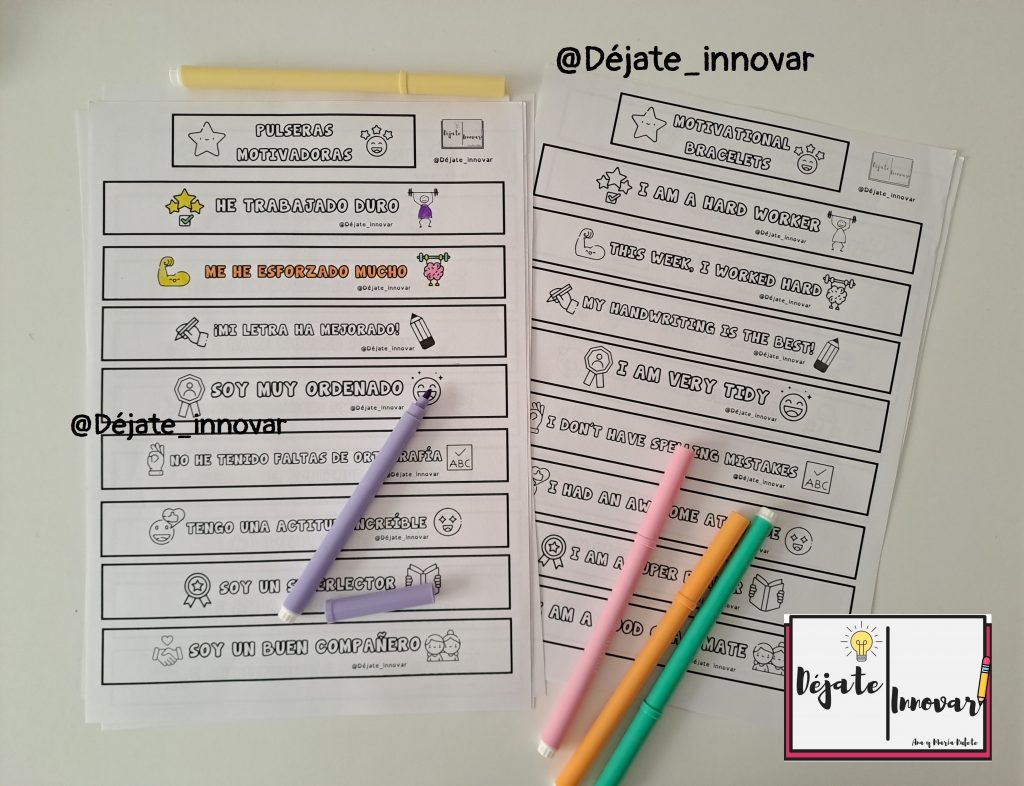 @Déjate_innovar
PULSERAS
MOTIVADORAS
Déjate Innovar
@Déjate_innovar
HE TRABAJADO DURO
@Déjate_innovar
ME HE ESFORZADO MUCHO
@Déjate_innovar
¡MI LETRA HA MEJORADO!
@Déjate_innovar
SOY MUY ORDENADO
@Déjate_innovar
@Déjate_innovar
NO HE TENIDO FALTAS DE ORTOGRAFÍA
ABC
@Déjate_innovar
TENGO UNA ACTITUD INCREÍBLE
@Déjate_innovar
SOY UN SUPERLECTOR
SOY UN BUEN COMPAÑERO
@Déjate_innovar
MOTIVATIONAL
BRACELETS
Déjate Innovar
@Déjate_innovar
I AM A HARD WORKER
@Déjate_innovar
THIS WEEK, I WORKED HARD
@Déjate_innovar
MY HANDWRITING IS THE BEST!
@Déjate_innovar
I AM VERY TIDY
@Déjate_innovar
I DON'T HAVE SPELLING MISTAKES
ABC
@Déjate_innovar
I HAD AN AWESOME
I AM A SUPER
I AM A GOOD CLASSMATE
Déjate Innovar
Ana y María